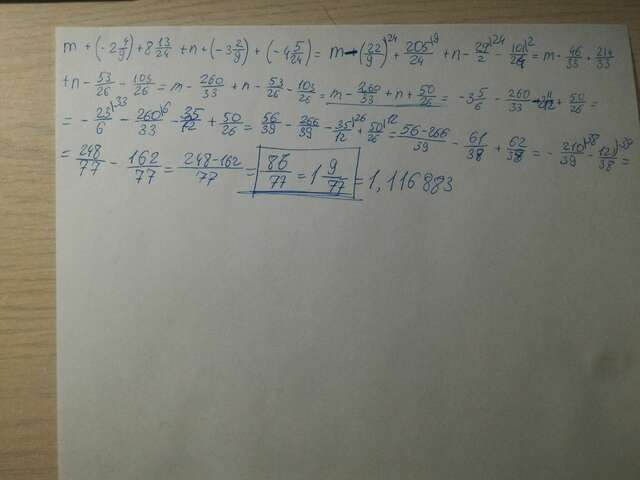 m + (-2 4/9) + 8 13/24 + n + (-3 2/9) + (-4 5/24) = m - (22/9)^24 + 205/24^9 + n - 29/2^24 - 101/24^2 = m - 46/33 + 214/33
+ n - 53/26 - 103/26 = m - 260/33 + n - 53/26 - 103/26 = m - 260/33 + n + 50/26 = -3 5/6 - 260/33 - 11/12 + 50/26 =
= - 23/6^33 - 260/33^6 - 35/12 + 50/26 = 56/39 - 266/39 - 35/12^26 + 50/26^12 = 56-266/39 - 61/38 + 62/38 = - 210/39^38 - 123/38^39 =
= 248/77 - 162/77 = 248-162/77 = 86/77 = 1 9/77 = 1,116883